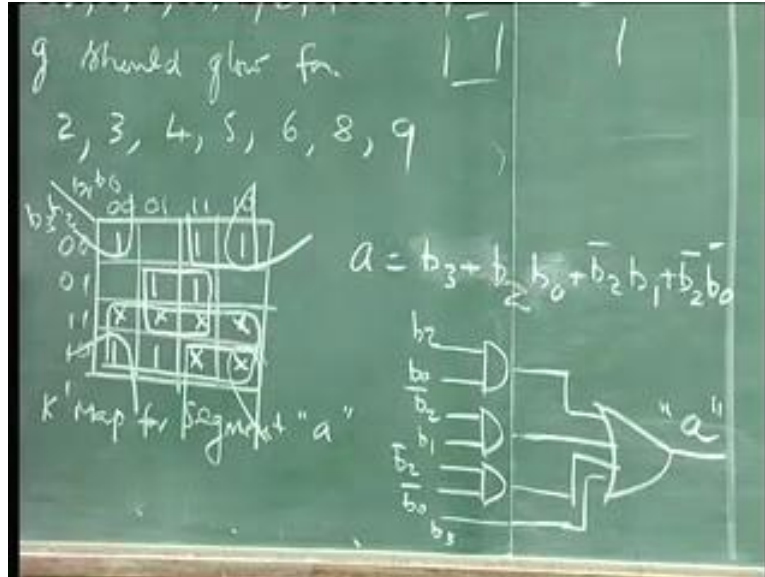 g should glow for
2, 3, 4, 5, 6, 8, 9
b₁b₀
b₃b₂ 00 01 11 10
00 1 1 1
01 1 1
11 x x x x
10 1 1 x x
K' Map for Segment "a"
a = b₃ + b₂ b₀ + b̄₂ b₁ + b̄₂ b̄₀
b₂
b₀
b̄₂
b₁
b̄₂
b̄₀
b₃
"a"